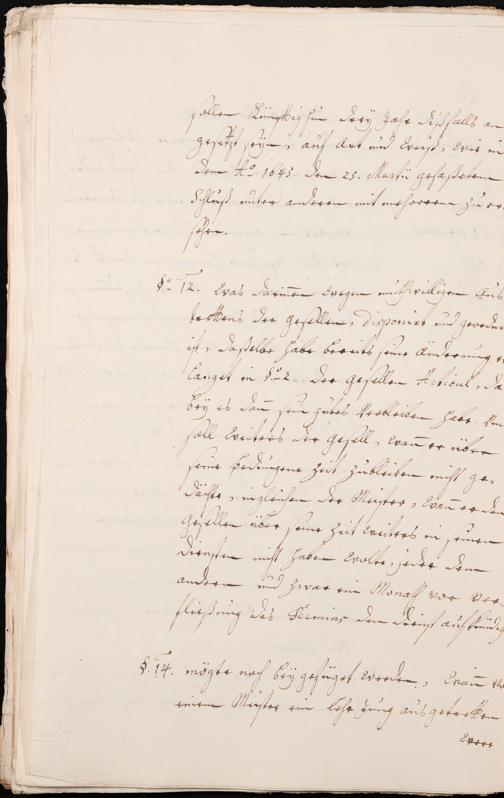 sollen Künfftighin drey Jahr dißfalls an
gesetzt seyn, auf Art und Weiß, wie in
dem Ao 1645. den 25. Martii gefaßtem
Schluß unter anderem mit mehrerem zu er
sehen.
§. 12. Was darinnen wegen muthwilligen Auß
trettens der Gesellen, disponiret und geordnet
ist, dasselbe habe bereits seine Änderung er
langet in der Gesellen Articul, da
bey es dann sein gutes Verbleiben habe.
soll weiters der Gesell, wann er über
seine bedungene Zeit zubleiben nicht ge-
dächte, ingleichen der Meister, wann er den
Gesellen über seine Zeit weiters in seinen
Diensten nicht haben wolte, jeder dem
andern und zwar ein Monath vor Ver
fließung des Termins den Dienst aufkünden
§. 14. mögte noch beygefüget werden, wann
einem Meister ein Lehr Jung ausgetretten